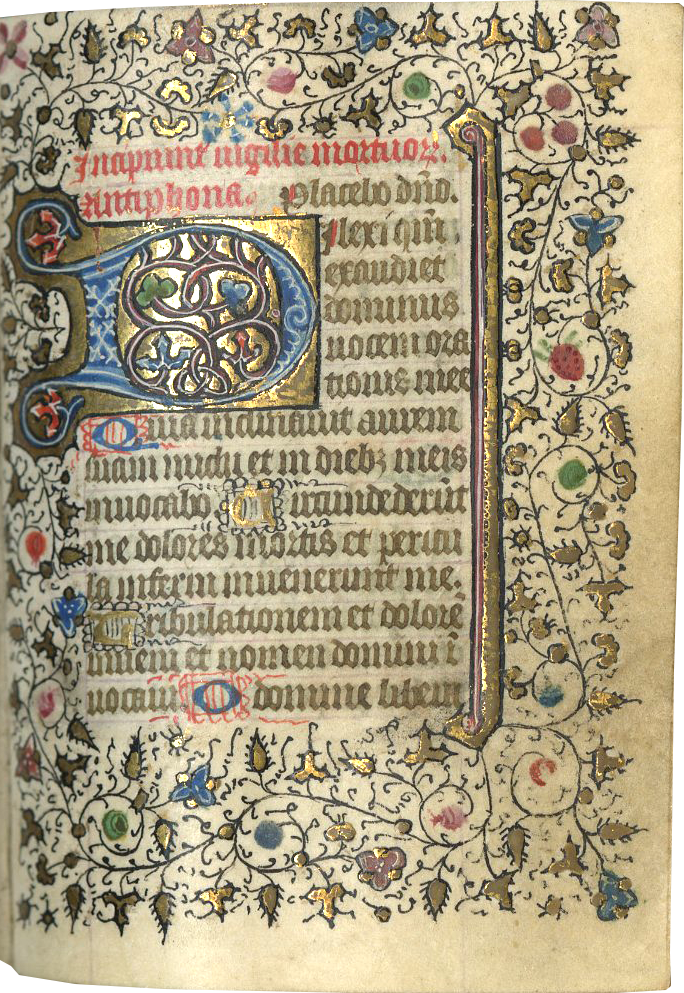 Incipiunt uigilie mortuor.
Antiphona. Placebo dño.
Dilexi qm̃
exaudiet
dominus
uocem ora
tionis mee
Quia inclinauit aurem
suam michi et in dieb; meis
inuocabo Circundederũt
me dolores mortis et pericu
la inferni inuenerunt me.
Tribulationem et dolorẽ
inueni et nomen domini ĩ
uocaui O domine libera